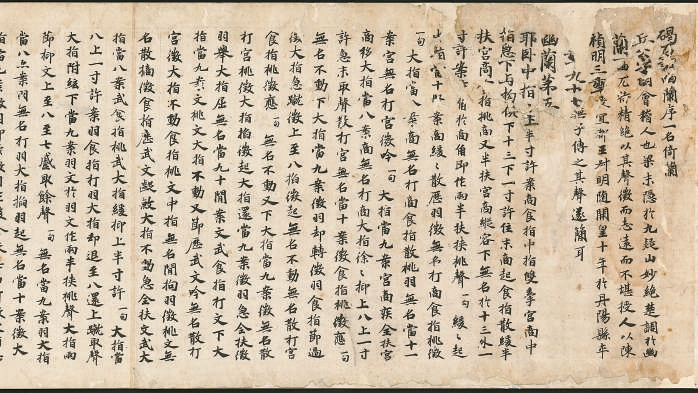 碣石調幽蘭序一名倚蘭
丘公字明會稽人也梁末隱於九疑山妙絕楚調於幽
蘭一曲尤特精絕以其聲微而志遠而不堪授人以陳
禎明三年授宜都王叔明隨開皇十年於丹陽縣卒
年九十七無子傳之其聲遂簡耳
幽蘭第五
耶臥中指十上半寸許案商食指中指雙牽宮商中
指急下与拘俱下十三下一寸許住末商起食指散緩半
扶宮商食指挑商又半扶宮商縱容下無名於十三外一
寸許案商角於商角即作兩半扶挾挑聲一句緩〻起
指當十八案商緩〻散歷羽徵無名打商食指挑徵
一句大指當八案商無名打商食指散挑羽無名當十一
案宮無名打宮徵吟一句大指當九案宮商疾全扶宮
商移大指當八案商無名打商大指徐〻抑上八上一寸
許急末取聲散打宮無名當十案徵食指挑徵應一句
無名不動下大指當九案徵羽却轉徵羽食指節過
徐大指急蹴徵上至八掐徵起無名不動無名散打宮
食指挑徵應一句無名不動又下大指當九案徵無名
打宮徵大指掐徵起大指還當九案徵羽急全扶徵
羽舉大指屈無名當九十間案文武食指打文下大
指當九案文挑文大指不動又即應武文吟無名散打
宮徵大指不動食指挑文中指無名間拘羽徵挑文無
名散摘徵食指應武文緩歷大指不動急全扶文武大
指當八案武食指挑武大指緩抑上半寸許一句大指當
八上一寸許案羽食指打羽大指却退至八還上蹴取聲
大指附絃下當九案羽文於羽文作兩半扶挾挑聲大指兩
節抑文上至八至七盛取餘聲一句無名當九案羽大指
當八案羽無名打羽大指掐羽起無名當十案徵大